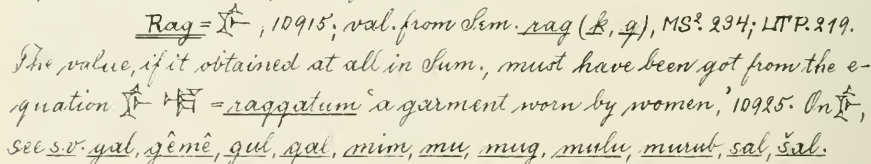 Rag = 𒊩, 10915; val. from Sem. rag (k, q), MS². 234; LTP. 219.
The value, if it obtained at all in Sum., must have been got from the e-
quation 𒊩 = raqqatum 'a garment worn by women,' 10925. On 𒊩,
see s.v. gal, gêmê, gul, qal, mim, mu, mug, mulu, murub, sal, šal.